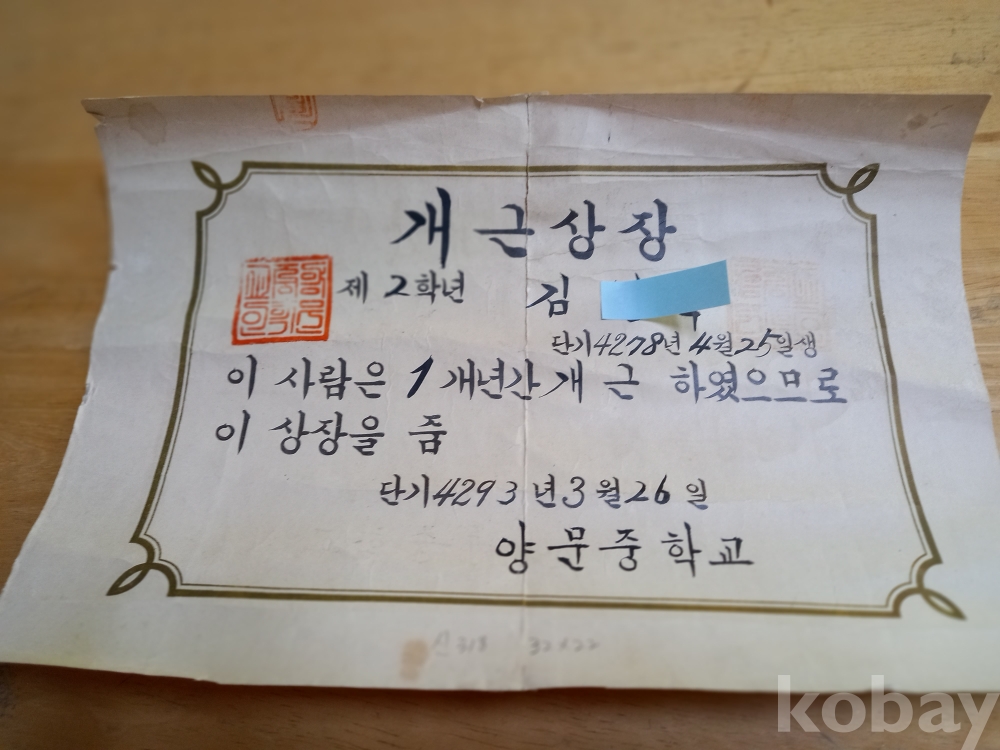 개근상장
제 2학년 김
단기4278년 4월25일생
이 사람은 1개년간 개근 하였으므로
이 상장을 줌
단기4293년3월26일
양문중학교
318 32x22
kobay